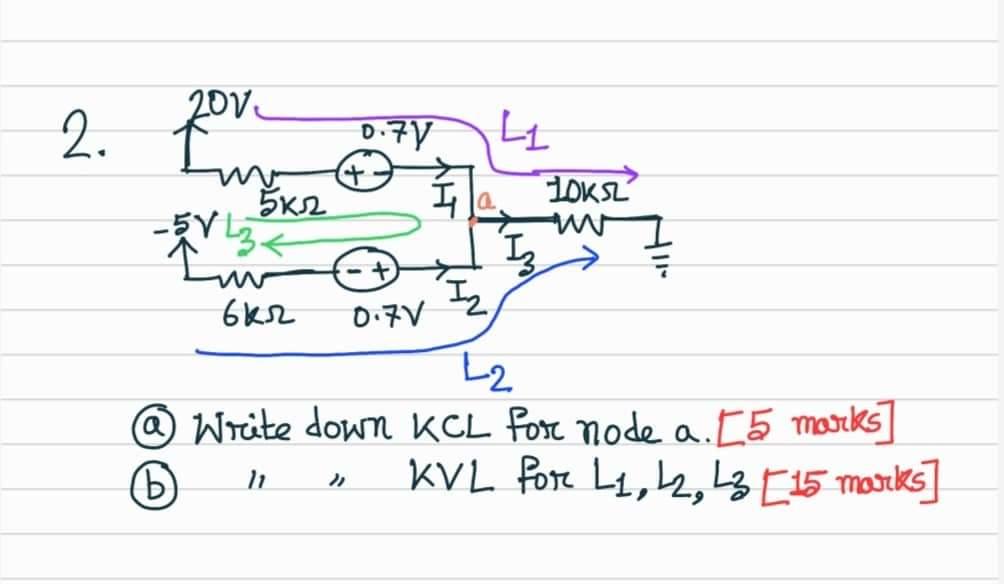 2.
20V
0.7V
L1
+ -
5kΩ
I1
a
10kΩ
-5V
L3
I3
- +
I2
6kΩ
0.7V
L2
ⓐ Write down KCL for node a. [5 marks]
ⓑ " " KVL for L1, L2, L3 [15 marks]